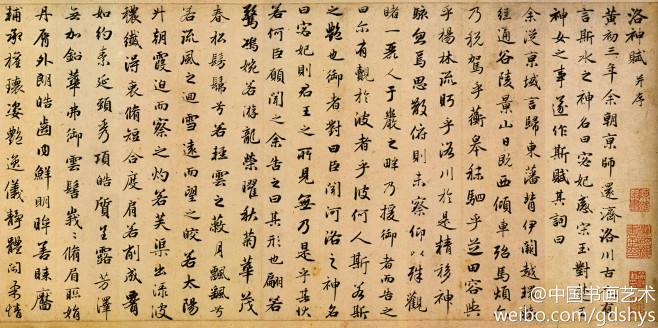 洛神賦 并序
黃初三年余朝京師還濟洛川古人有
言斯水之神名曰宓妃感宋玉對楚王
神女之事遂作斯賦其詞曰
余從京域言歸東藩背伊闕越轘轅
經通谷陵景山日既西傾車殆馬煩爾
乃稅駕乎蘅皋秣駟乎芝田容與
乎楊林流眄乎洛川於是精移神
駭忽焉思散俯則未察仰以殊觀
睹一麗人于巖之畔乃援御者而告之
曰爾有覿於彼者乎彼何人斯若斯
之艷也御者對曰臣聞河洛之神名
曰宓妃則君王之所見無乃是乎其狀
若何臣願聞之余告之曰其形也翩若
驚鴻婉若游龍榮曜秋菊華茂
春松髣髴兮若輕雲之蔽月飄飄兮
若流風之迴雪遠而望之皎若太陽
升朝霞迫而察之灼若芙渠出淥波
穠纖得衷脩短合度肩若削成腰
如約素延頸秀項皓質呈露芳澤
無加鉛華弗御雲髻峩峩脩眉聯娟
丹脣外朗皓齒內鮮明眸善睞靨
輔承權瓌姿艷逸儀靜體閑柔情
@中国书画艺术
weibo.com/gdshys